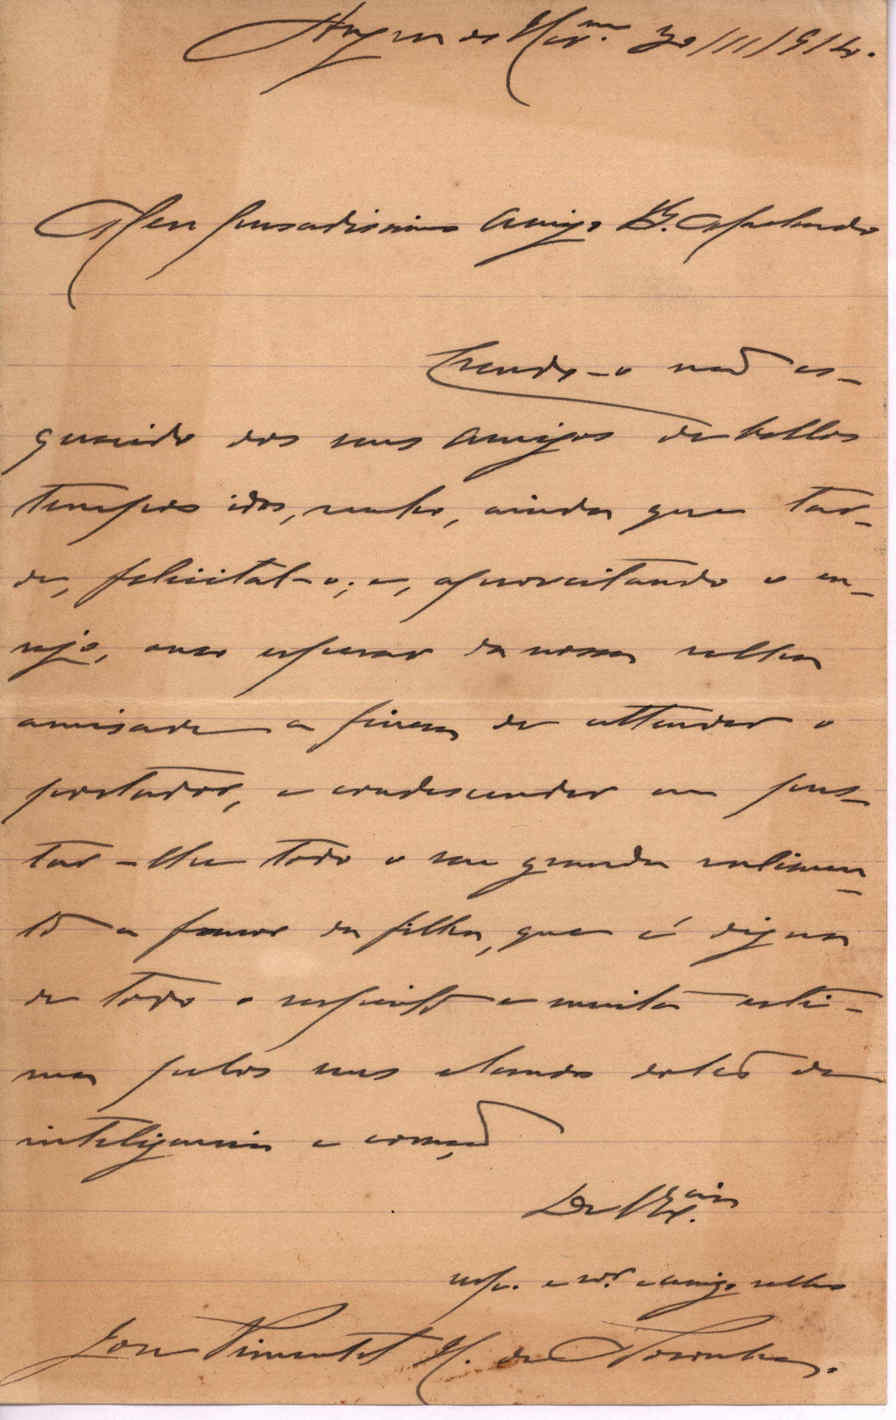 Angra do Her.mo 30/III/914.
Meu presadissimo Amigo B. Machado
Crendo-o não es-
quecido dos seus amigos de bellos
tempos idos, venho, ainda que tar-
de, felicital-o; e, aproveitando o en-
sejo, ouso esperar da nossa velha
amisade a fineza de attender o
portador, e condescender em pres-
tar-lhe todo o seu grande valimen-
to a favor da filha, que é digna
de todo o respeito e muita esti-
ma pelos seus elevados dotes de
intelligencia e coração
De V. Ex.cia
resp. e am.º velho
José Pimentel H. de Noronha.